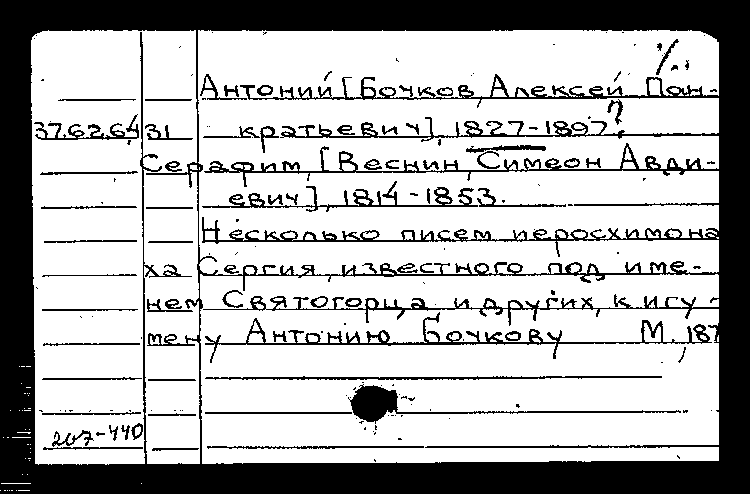 Антоний [Бочков, Алексей Пан-
37.62.64 31 кратьевич], 1827-1897?
Серафим, [Веснин, Симеон Авди-
евич], 1814-1853.
Несколько писем иеросхимона
ха Сергия, известного под име-
нем Святогорца и других, к игу-
мену Антонию Бочкову М., 187
207-440